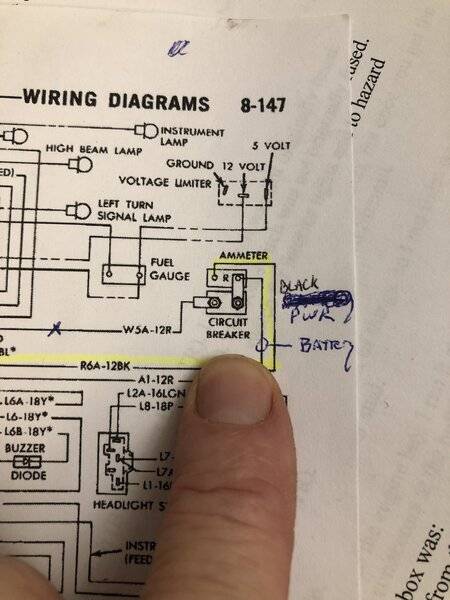 used.
to hazard
WIRING DIAGRAMS 8-147
INSTRUMENT
LAMP
HIGH BEAM LAMP
5 VOLT
GROUND 12 VOLT
ED)
VOLTAGE LIMITER
LEFT TURN
SIGNAL LAMP
AMMETER
FUEL
GAUGE
R
BLACK
PWR
CIRCUIT
BREAKER
W5A-12R
BATRY
BL*
R6A-12BK
A1-12R
L2A-16LGN
L6A-18Y*
L8-18P
L6-18Y*
L6B-18Y*
BUZZER
L7-
L7A
DIODE
L1-16
HEADLIGHT S
INSTR
(FEED
box was:
from the